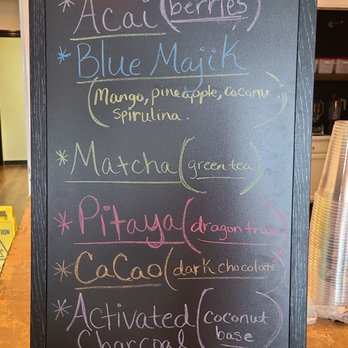 Acai (berries)
* Blue Majik
(Mango, pineapple, coconut,
spirulina.)
* Matcha (green tea)
* Pitaya (dragon fruit)
* CaCao (dark chocolate)
* Activated (coconut
Charcoal base)